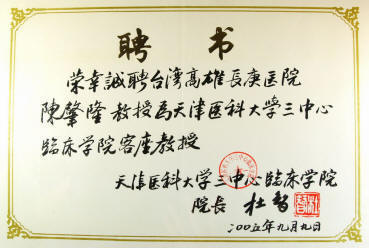 聘书
荣幸誠聘台湾高雄長庚医院
陳馨隆教授為天津医科大学三中心
临床学院客座教授
天津医科大学三中心临床学院
院長 杜智
二00五年九月九日